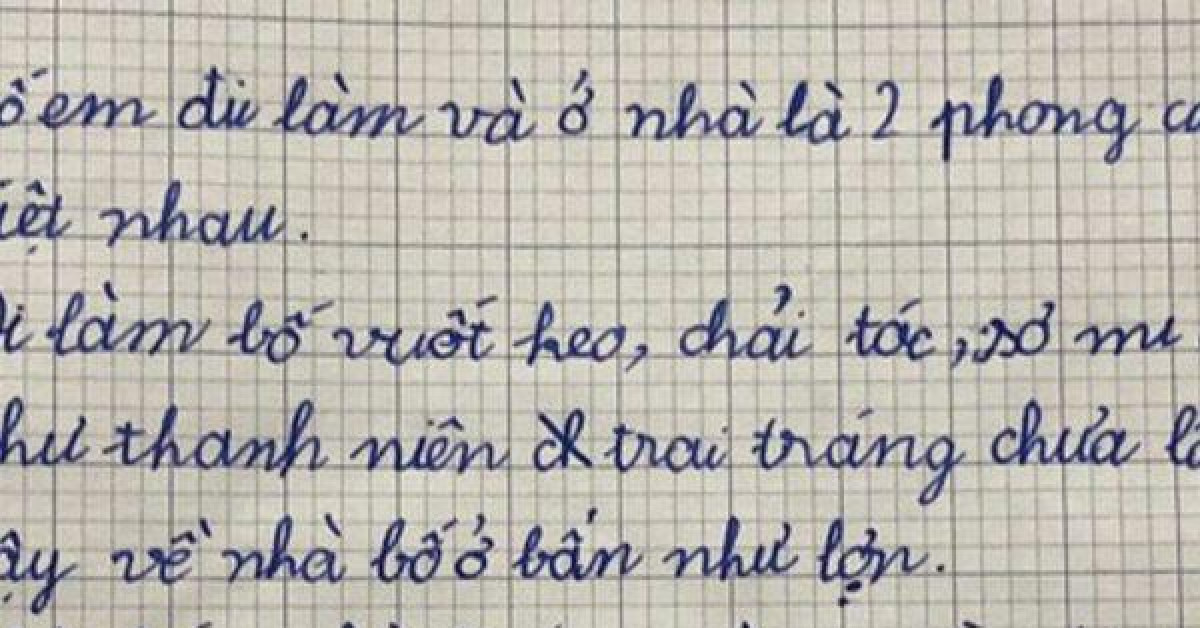 ố em đi làm và ở nhà là 2 phong
iệt nhau.
i làm bố vuốt keo, chải tóc, sơ mi
hư thanh niên trai tráng chưa
ậy về nhà bố ở bẩn như lợn.